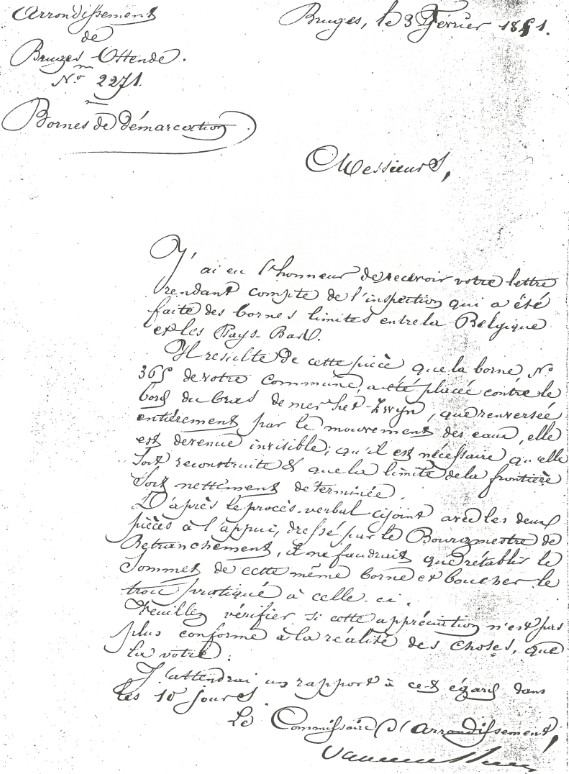 Arrondissement
de
Bruges-Ostende.
N° 2271.
Bornes de démarcation
Bruges, le 3 Février 1851.
Messieurs,
J'ai eu l'honneur de recevoir votre lettre
rendant compte de l'inspection qui a été
faite des bornes limites entre la Belgique
et les Pays-Bas.
Il résulte de cette pièce que la borne N°
365 de votre commune, a été placée contre le
bord du bras de mer het Zwyn, que renversée
entièrement par le mouvement des eaux, elle
est devenue invisible; qu'il est nécessaire qu'elle
soit reconstruite & que la limite de la frontière
soit nettement determinée.
D'après le procès-verbal cijoint avec les deux
pièces à l'appui, dressé par le Bourgmestre de
Retranchement, il ne faudrait que rétablir le
sommet de cette même borne et boucher le
trou pratiqué à celle ci.
Veuillez vérifier si cette appréciation n'est pas
plus conforme à la réalité des choses, que
la votre.
J'attendrai un rapport à cet égard dans
les 10 jours.
Le Commissaire d'arrondissement,